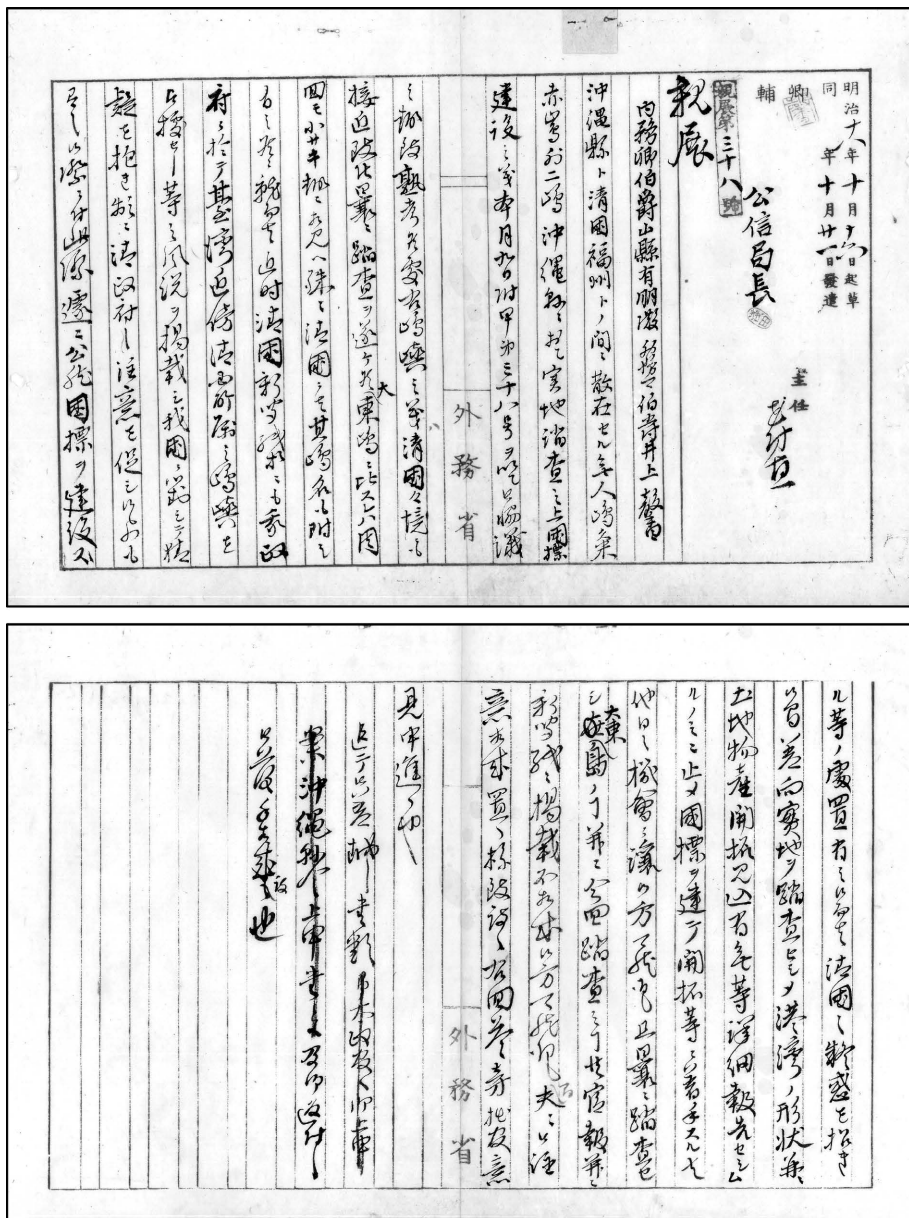 明治十八年十月十六日起草
同 年十月廿一日發遣
卿
輔
主任
公信局長
親展第三十八號
親展
内務卿伯爵山縣有朋殿 外務卿伯爵井上馨
沖縄縣ト清国福州トノ間ニ散在セル無人嶋粂
赤嶋外二嶋沖縄縣ニ於テ実地踏査之上國標
建設之義本月九日附甲第三十八号ヲ以テ御協議
之趣致熟考候處右嶋嶼之義ハ清國々境ニも
接近致候曩ニ踏査ヲ遂ケ候大東嶋ニ比スレハ周
回モ小サキ趣ニ相見ヘ殊ニ清國ニハ其嶋名も附シ
有之候ニ就テハ近時清國新聞紙等ニも我政
府ニ於テ臺湾近傍清國所属之嶋嶼を
占據セシ等之風説ヲ掲載シ我國ニ對シテ猜
疑を抱き頻ニ清政府之注意を促シ候ものも
有之候際ニ付此際遽ニ公然國標ヲ建設ス
外務省
ル等ノ處置有之候テハ清國之疑惑を招き
候間差向實地ヲ踏査セシメ港湾ノ形状并ニ
土地物産開拓見込有無等詳細報告セシム
ルノミニ止メ國標ヲ建テ開拓等ニ着手スルハ
他日之機會ニ譲り候方可然存候且曩ニ踏査セ
シ大東島ノ事并ニ今回踏査之事共官報并ニ
新聞紙ニ掲載不相成候方可然存候間夫々御注
意相成置候様致度候右回答旁拙官意
見申進候也
外務省